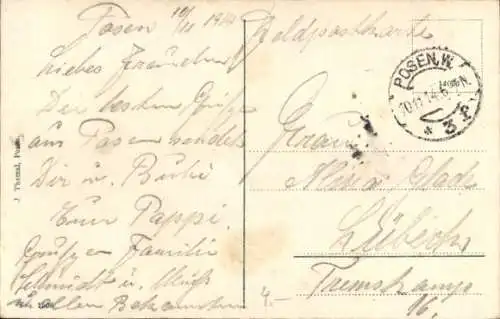 Posen 10/11 1914
Liebes Frauchen!
Die besten Grüße
aus Posen sendet
Dir u. Bubi
Euer Pappi.
Grüße Familie
Schmidt u.
u. allen Bekannten
Feldpostkarte
POSEN. W.
10.11.14.6-7N.
* 3 f
Frau
Lübeck
Tremskamp
16.
4.-
J. Themal, Posen